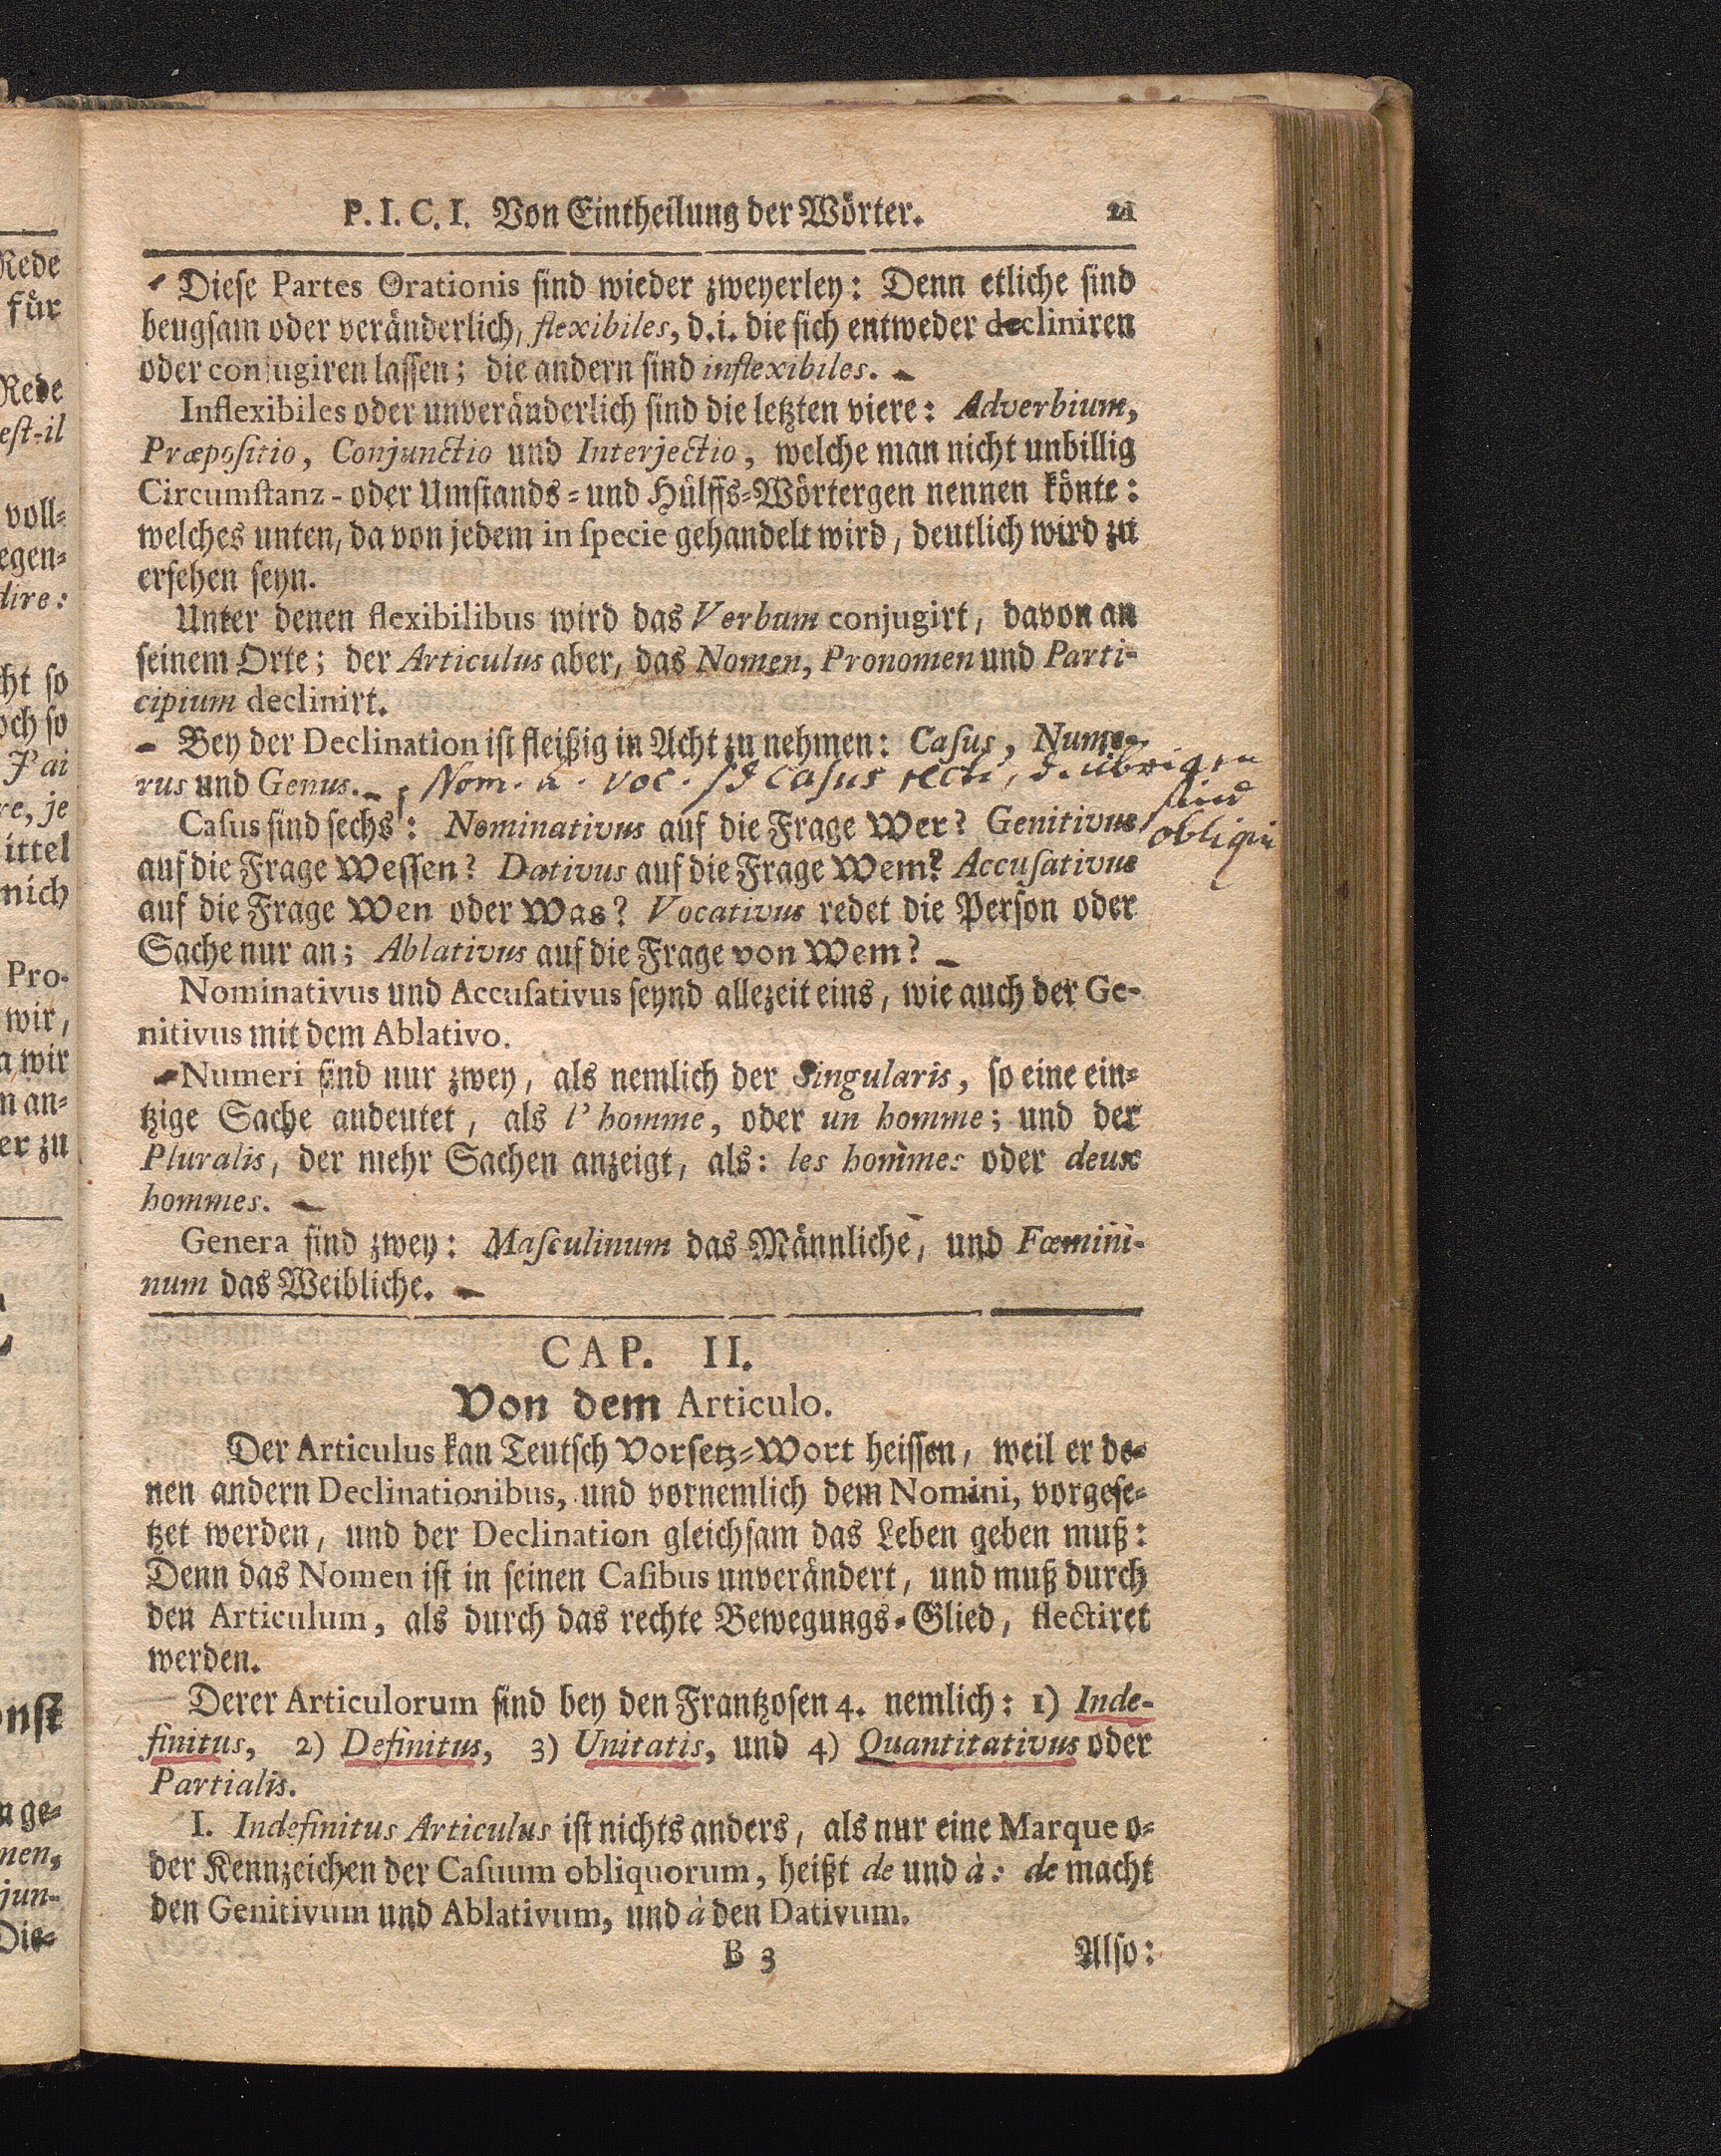 P. I. C. I. Von Eintheilung der Wörter. 21
Diese Partes Orationis sind wieder zweyerley: Denn etliche sind
beugsam oder veränderlich, flexibiles, d.i. die sich entweder decliniren
oder conjugiren lassen; die andern sind inflexibiles.
Inflexibiles oder unveränderlich sind die letzten viere: Adverbium,
Præpositio, Conjunctio und Interjectio, welche man nicht unbillig
Circumstanz- oder Umstands- und Hülffs-Wörtergen nennen könte:
welches unten, da von jedem in specie gehandelt wird, deutlich wird zu
ersehen seyn.
Unter denen flexibilibus wird das Verbum conjugirt, davon an
seinem Orte; der Articulus aber, das Nomen, Pronomen und Parti-
cipium declinirt.
Bey der Declination ist fleißig in Acht zu nehmen: Casus, Nume-
rus und Genus.
Nom. u. voc. sd casus recti, d. übrigen
sind
obliqui
Casus sind sechs: Nominativus auf die Frage Wer? Genitivus
auf die Frage Wessen? Dativus auf die Frage Wem? Accusativus
auf die Frage Wen oder Was? Vocativus redet die Person oder
Sache nur an; Ablativus auf die Frage von Wem?
Nominativus und Accusativus seynd allezeit eins, wie auch der Ge-
nitivus mit dem Ablativo.
Numeri sind nur zwey, als nemlich der Singularis, so eine ein-
tzige Sache andeutet, als l'homme, oder un homme; und der
Pluralis, der mehr Sachen anzeigt, als: les hommes oder deux
hommes.
Genera sind zwey: Masculinum das Männliche, und Fœmini-
num das Weibliche.
CAP. II.
Von dem Articulo.
Der Articulus kan Teutsch Vorsetz-Wort heissen, weil er de-
nen andern Declinationibus, und vornemlich dem Nomini, vorgese-
tzet werden, und der Declination gleichsam das Leben geben muß:
Denn das Nomen ist in seinen Casibus unverändert, und muß durch
den Articulum, als durch das rechte Bewegungs-Glied, flectiret
werden.
Derer Articulorum sind bey den Frantzosen 4. nemlich: 1) Inde-
finitus, 2) Definitus, 3) Unitatis, und 4) Quantitativus oder
Partialis.
I. Indefinitus Articulus ist nichts anders, als nur eine Marque o-
der Kennzeichen der Casuum obliquorum, heißt de und à: de macht
den Genitivum und Ablativum, und à den Dativum.
B 3 Also: